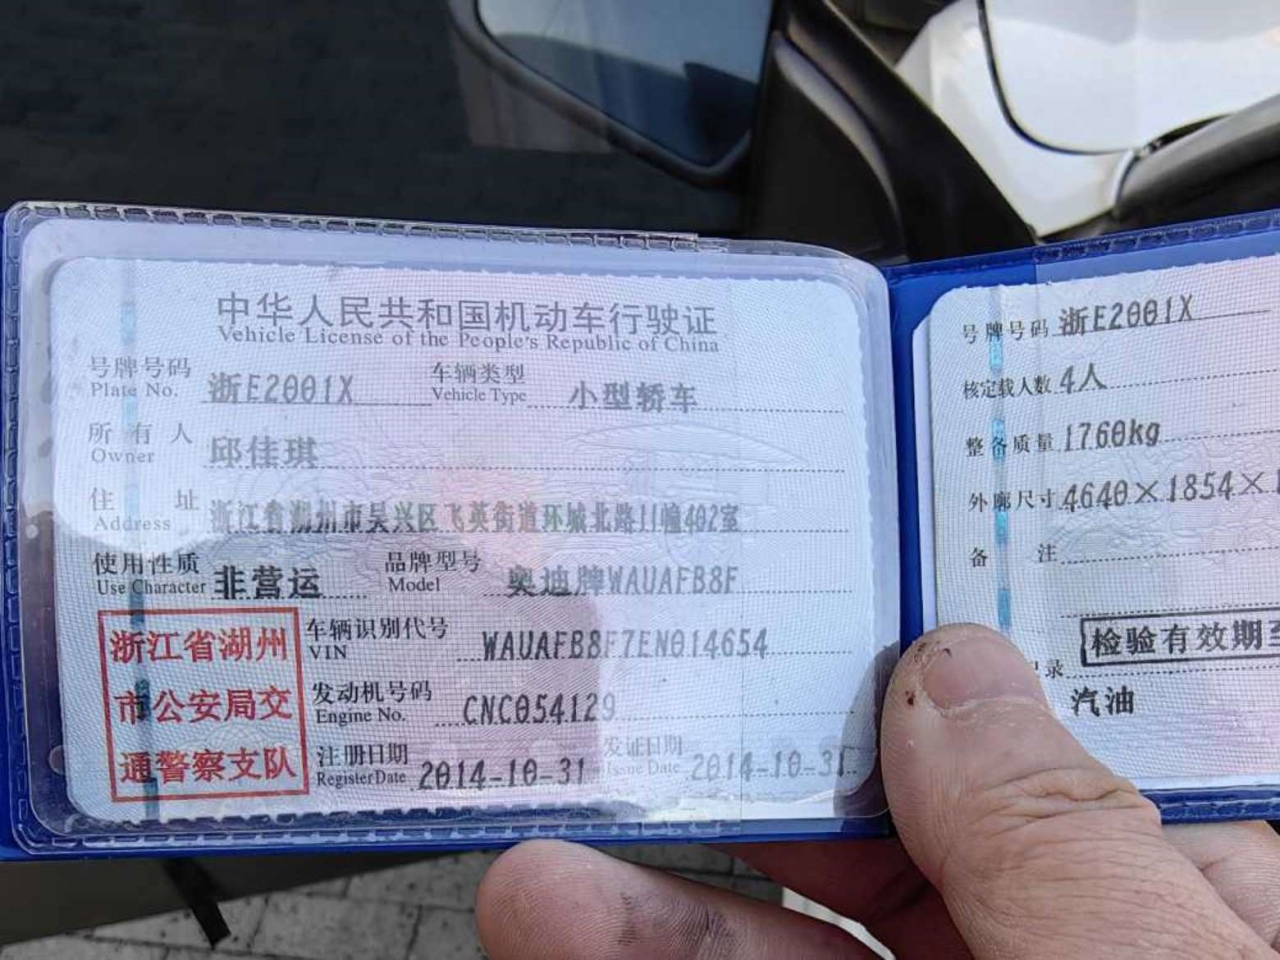 中华人民共和国机动车行驶证
Vehicle License of the People's Republic of China
号牌号码 浙E2001X 车辆类型 小型轿车
Plate No. Vehicle Type
所有人 邱佳琪
Owner
住址 浙江省湖州市吴兴区飞英街道环城北路11幢402室
Address
使用性质 非营运 品牌型号 奥迪牌WAUAFB8F
Use Character Model
浙江省湖州
市公安局交
通警察支队
车辆识别代号 WAUAFB8F7EN014654
VIN
发动机号码 CNC054129
Engine No.
注册日期 2014-10-31 发证日期 2014-10-31
Register Date Issue Date
号牌号码 浙E2001X
核定载人数 4人
整备质量 1760kg
外廓尺寸 4640×1854×1
备注
检验有效期至
录
汽油